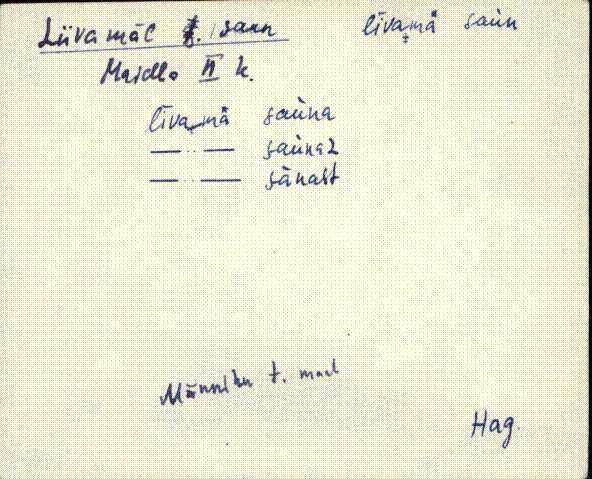 Liivamäe t. saun līva_mǟ saùn
Maidla II k.
līva_mǟ saùna
—··— saùnaz
—··— sànast
Männiku t. maal
Hag.